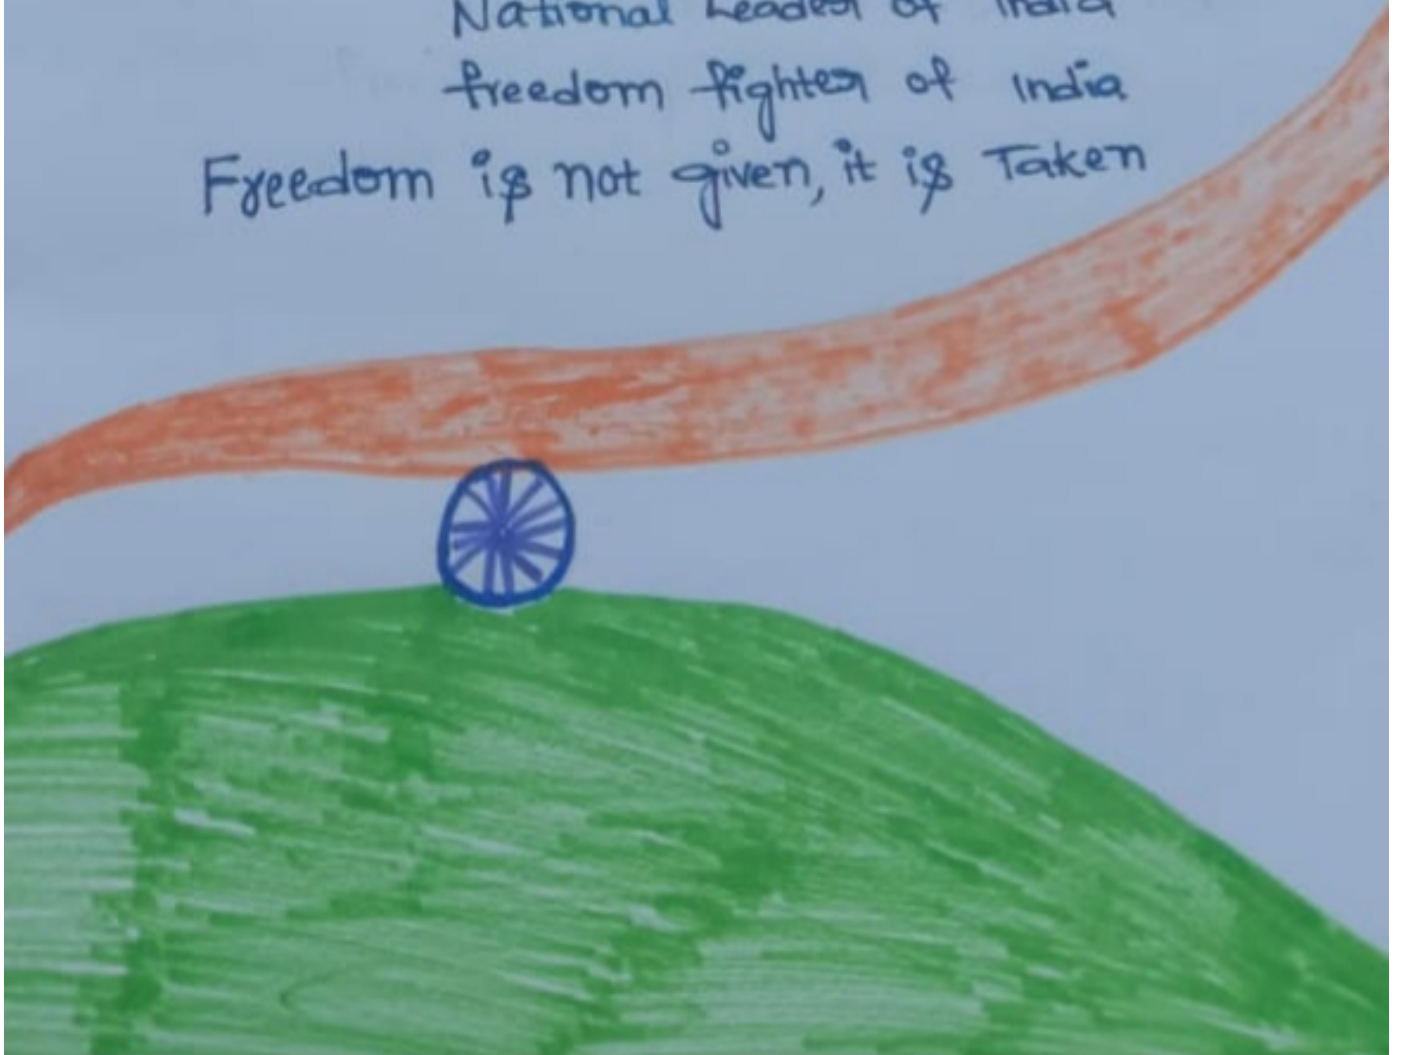 National Leader of India
freedom fighter of India
Freedom is not given, it is Taken